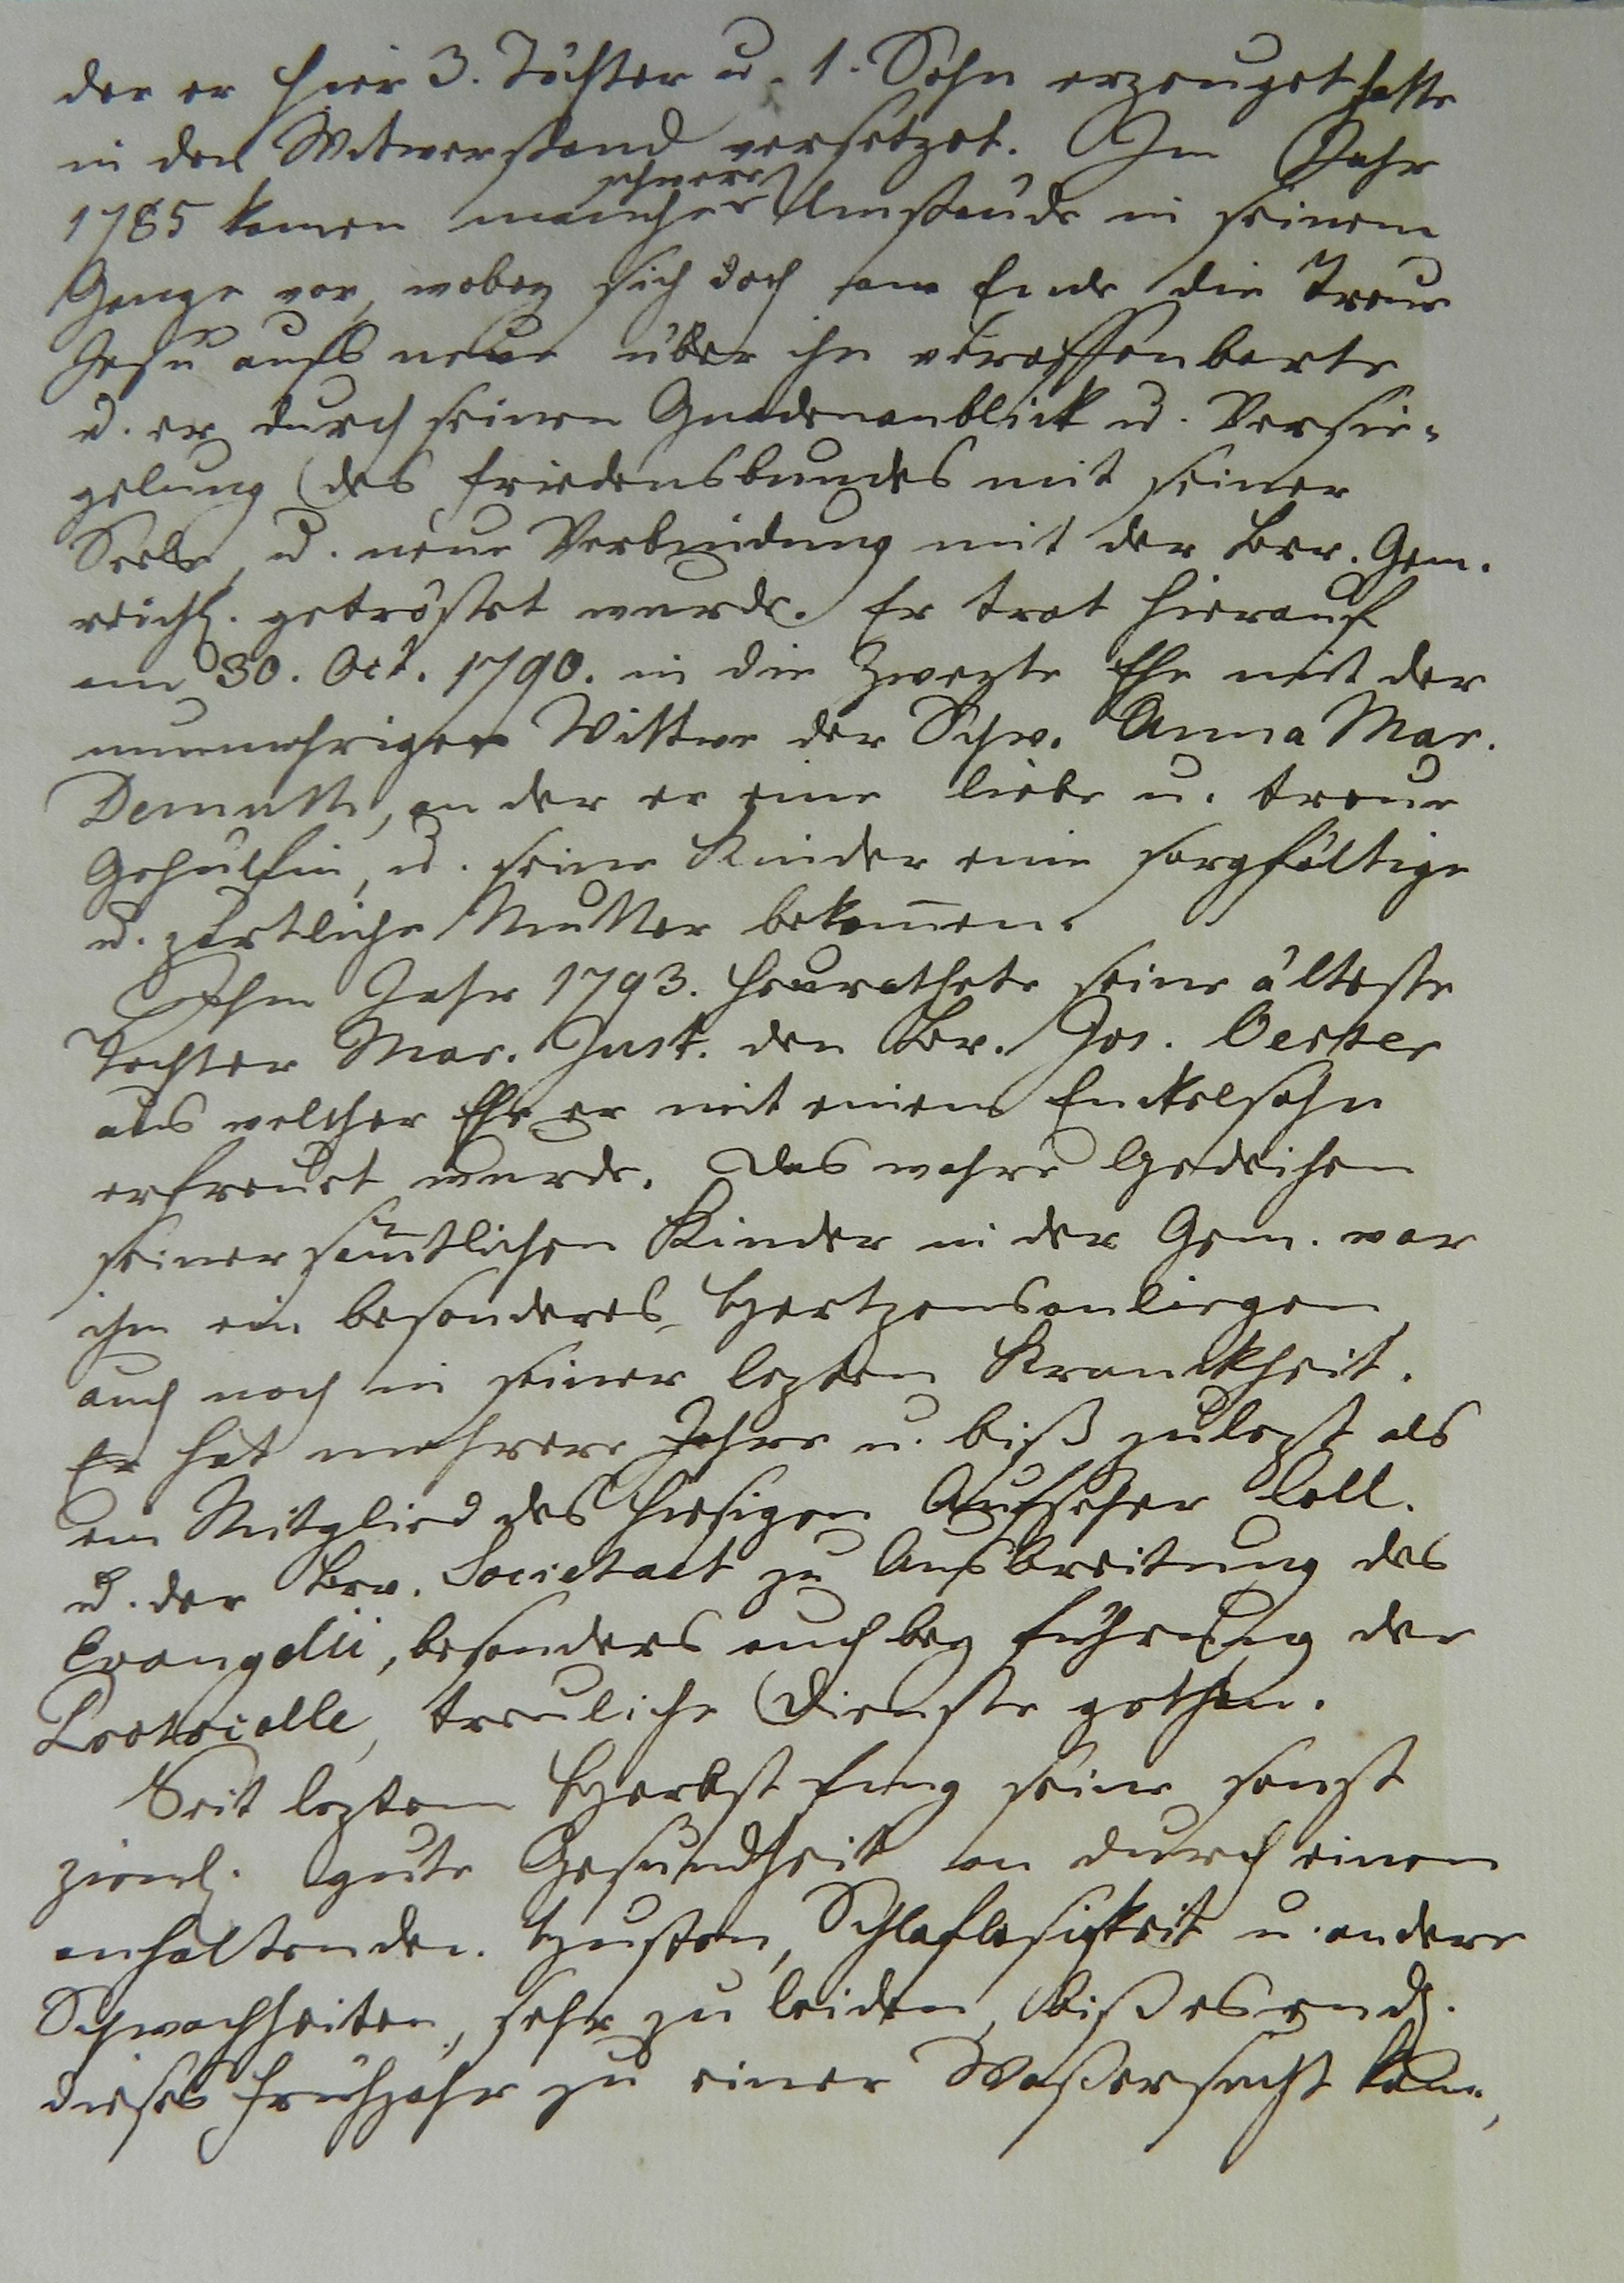 der er hier 3. Töchter u. 1. Sohn erzeuget hatte
in den Witwerstand versetzet. Im Jahr
1785 kamen manche schwere Umstände in seinem
Gange vor, wobey sich doch am Ende die Treue
Jesu aufs neue über ihn veroffenbarte
u. er durch seinen Gnadenanblick u. Versie-
gelung des Friedensbundes mit seiner
Seele, u. neue Verbindung mit der Brr. Gem.
reichl. getröstet wurde. Er trat hierauf
am 30. Oct. 1790. in die Zweyte Ehe mit der
nunmehrigen Wittwe der Schw. Anna Mar.
Demuth, an der er eine liebe u. treue
Gehülfin, u. seine Kinder eine sorgfältige
u. zärtliche Mutter bekamen.
Ihm Jahr 1793. heurathete seine älteste
Tochter Mar. Just. den Br. Jos. Oerter
aus welcher Ehe er mit einem Enckelsohn
erfreuet wurde. Das wahre Gedeihen
seiner sämtlichen Kinder in der Gem. war
ihm ein besonderes Hertzensanliegen
auch noch in seiner lezten Kranckheit.
Er hat mehrere Jahre u. biß zulezt als
ein Mitglied des hiesigen Aufseher Coll.
u. der Brr. Societaet zu Ausbreitung des
Evangelii, besonders auch bey Führung der
treuliche Dienste gethan.
Seit leztem Herbst fing seine sonst
zieml. gute Gesundheit an durch einen
anhaltenden Husten, Schlaflosigkeit u. andere
Schwachheiten, sehr zu leiden, biß es endl.
dieses Frühjahr zu einer Waßersucht kam,